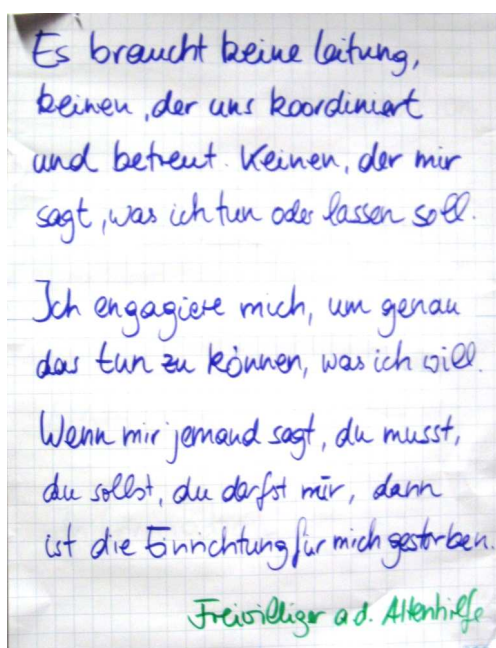 Es braucht keine Leitung,
keinen, der uns koordiniert
und betreut. Keinen, der mir
sagt, was ich tun oder lassen soll.
Ich engagiere mich, um genau
das tun zu können, was ich will.
Wenn mir jemand sagt, du musst,
du sollst, du darfst nur, dann
ist die Einrichtung für mich gestorben.
Freiwilliger a d. Altenhilfe